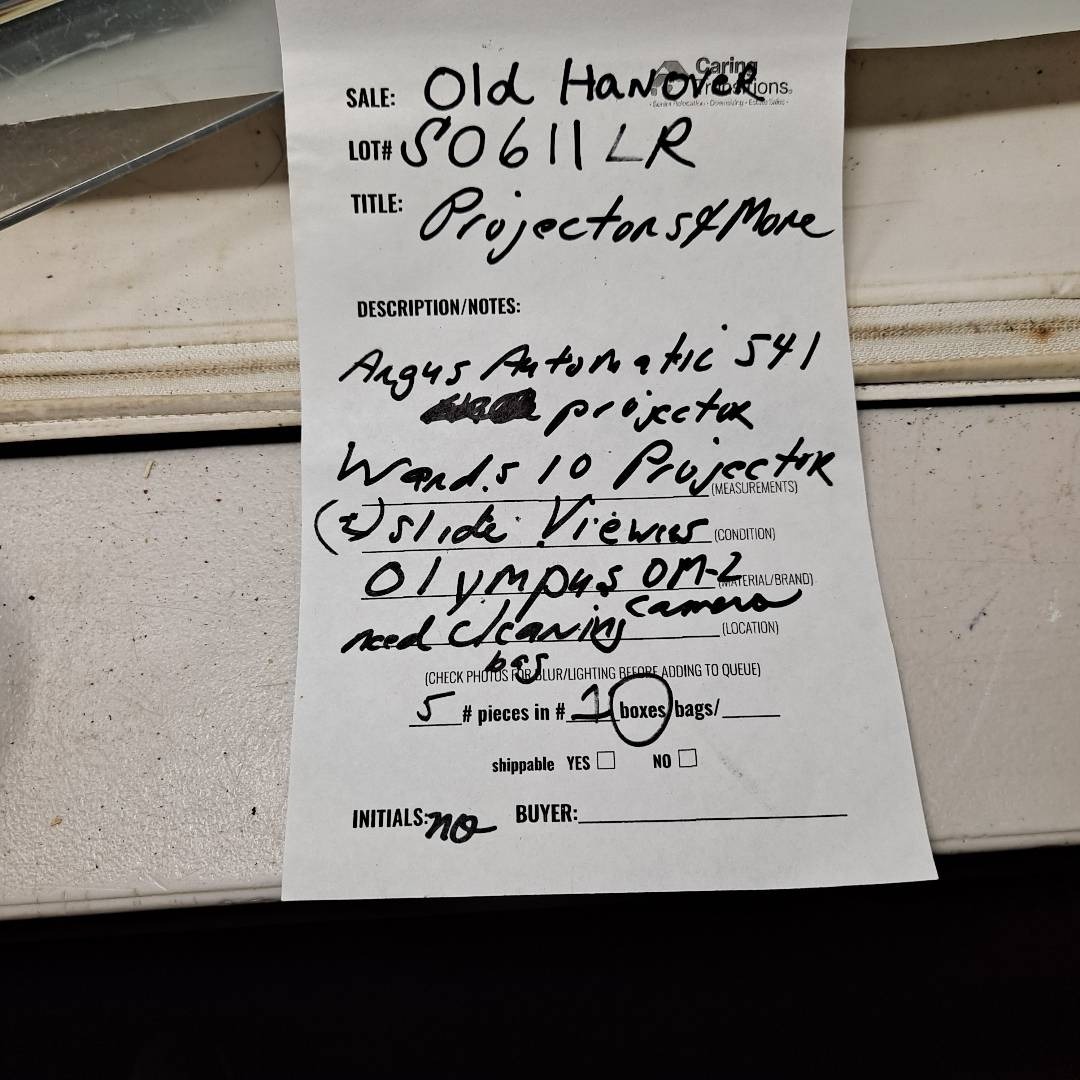 Caring
Transitions®
SALE: Old Hanover
LOT# S0611LR
TITLE: Projectors & More
DESCRIPTION/NOTES:
Argus Automatic 541
projector
Wards 10 Projector
(MEASUREMENTS)
slide Viewers (CONDITION)
Olympus OM-2 (MATERIAL/BRAND)
camera
need cleaning (LOCATION)
bag
(CHECK PHOTOS FOR BLUR/LIGHTING BEFORE ADDING TO QUEUE)
5 # pieces in # 1 boxes/bags/
shippable YES NO
INITIALS: no BUYER: